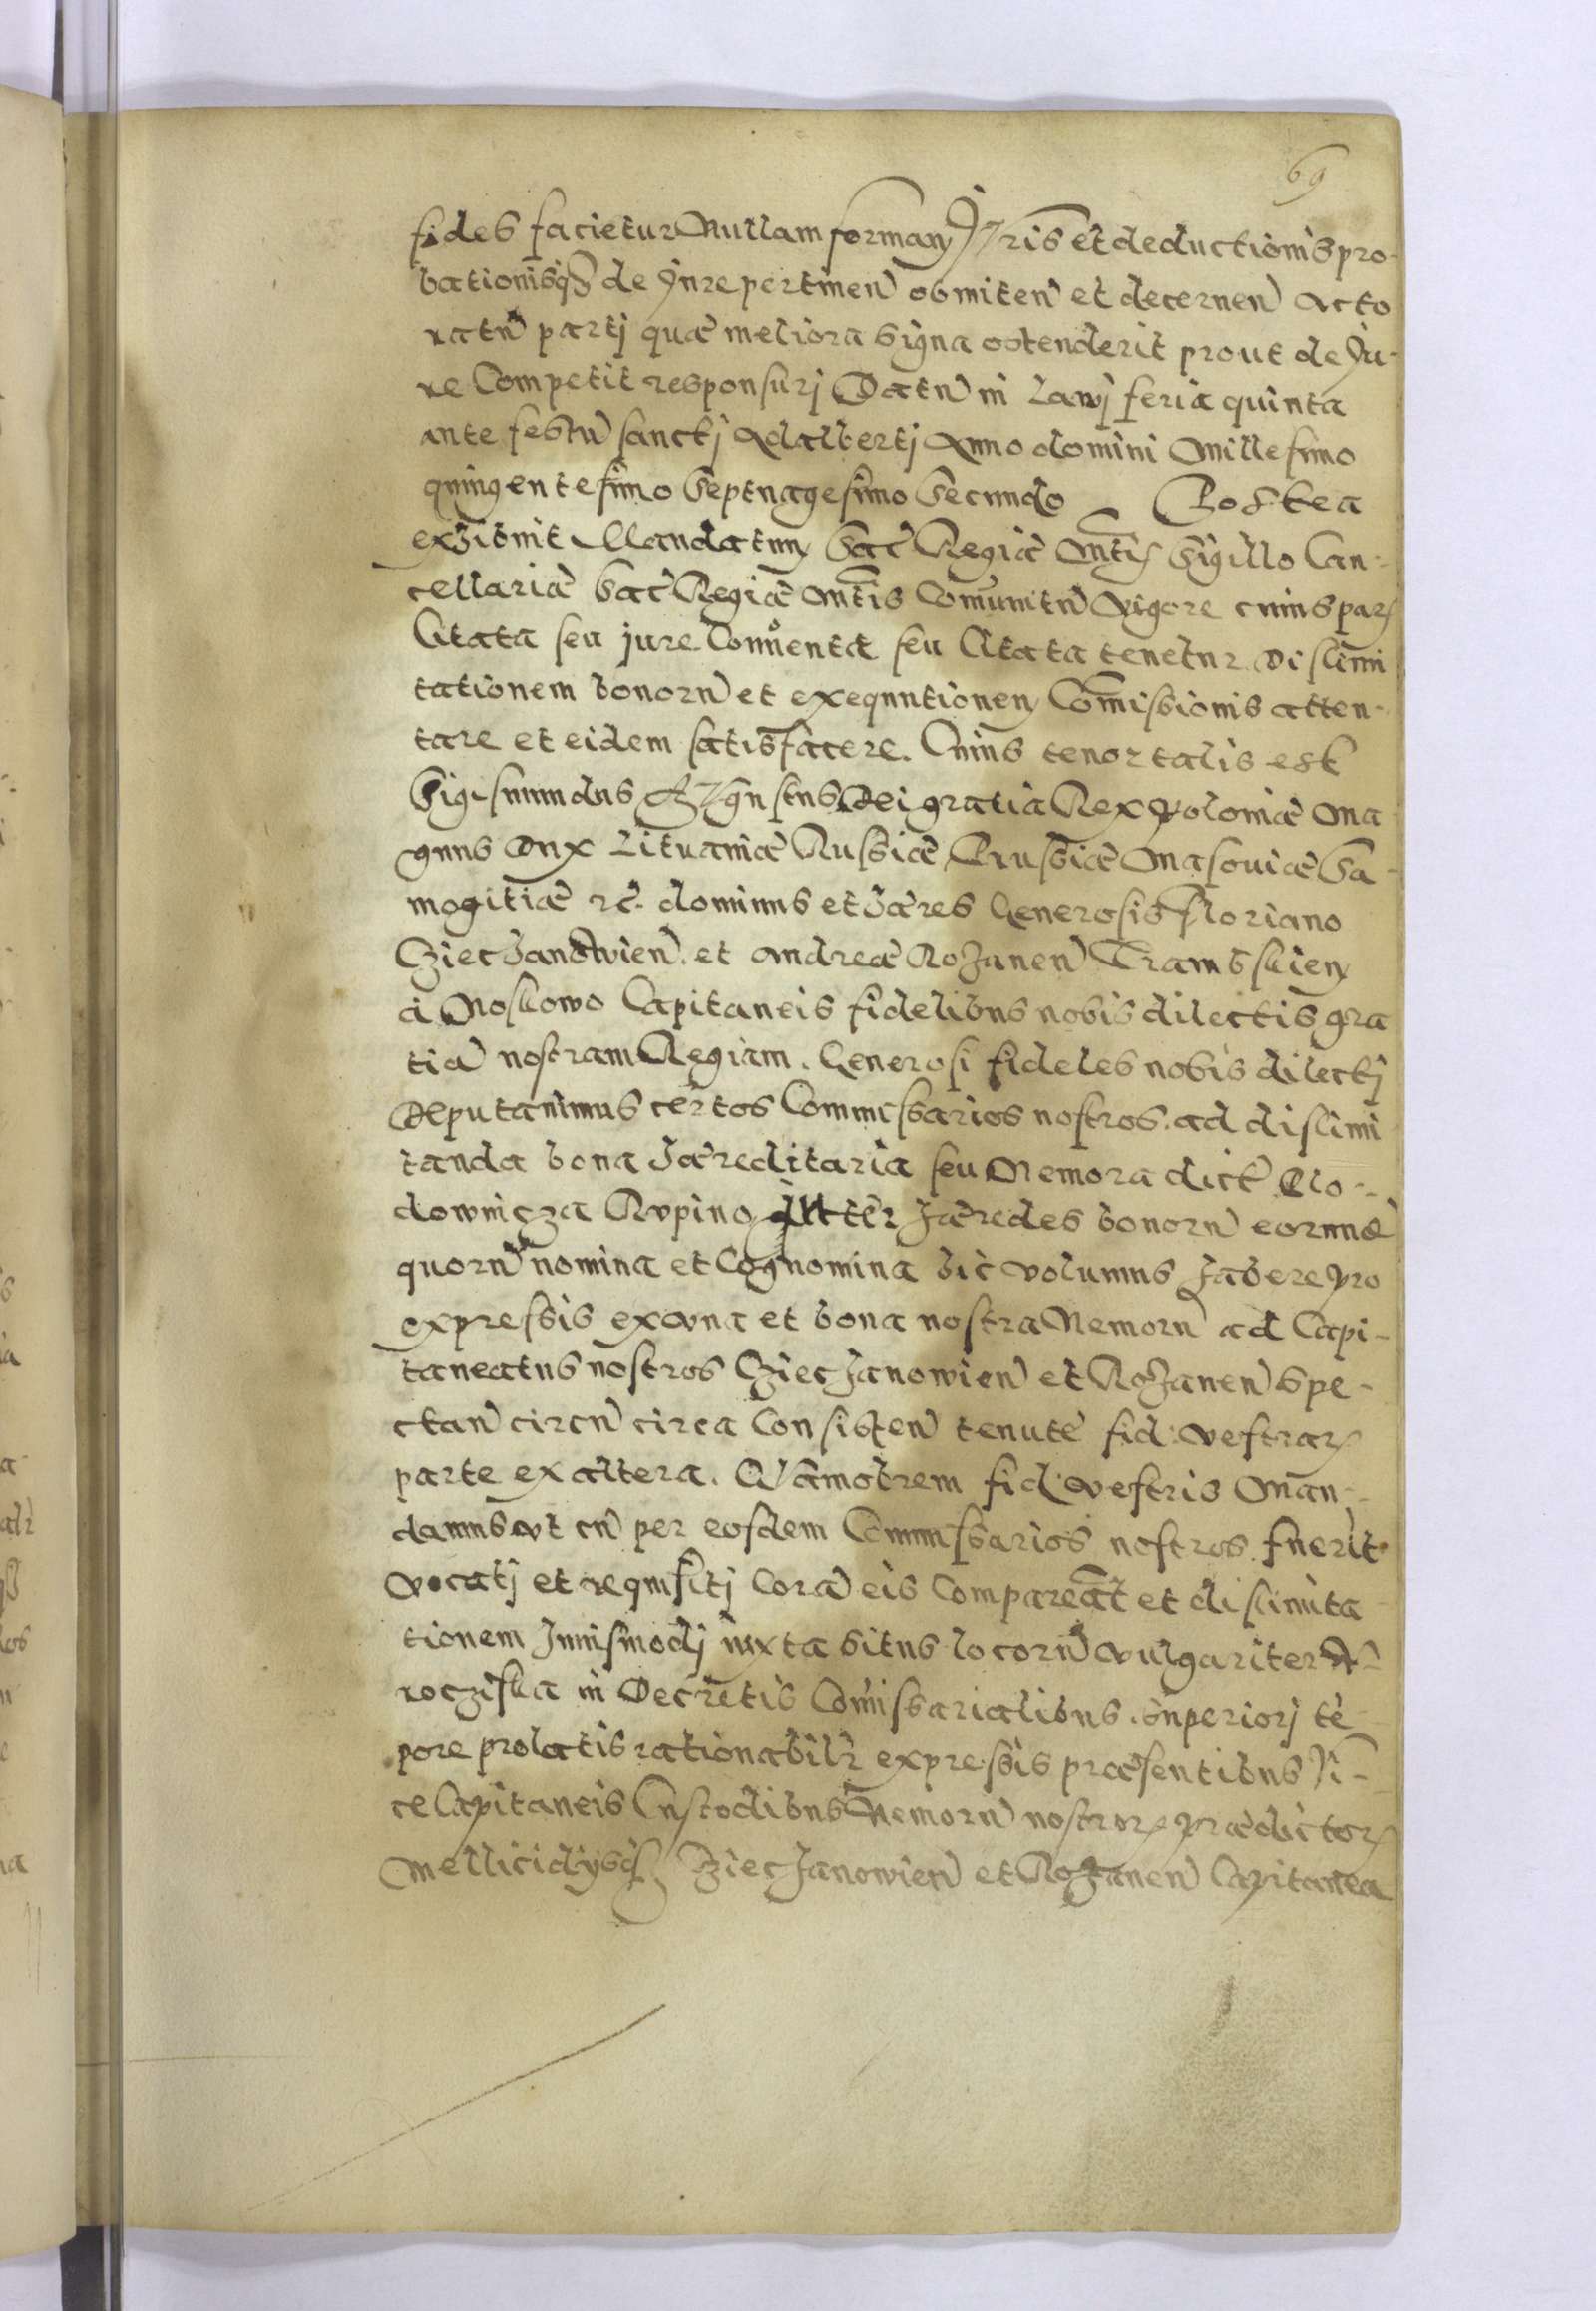 69
fides facietur Nullam formam Iuris et deductionis pro-
bationisq₃ de Jure pertinen̄ obmiten̄ et decernen̄ acto
ratū partj quæ meliora signa ostenderit prout de Ju-
re Competit responsurj Datū in Lawj feria quinta
ante festū sanctj Adalbertj Anno domini Millesimo
quingentesimo Septuagesimo Secundo Postea
exhibuit Mandatum Sac Regiæ Mtis Sigillo Can-
cellariæ Sac Regiæ Mtis Comunitū Vigore cuius pars
Citata seu jure Conuenta seu Citata tenetur dislimi
tationem bonorū et exequutionem Comissionis atten-
tare et eidem satisfacere. Cuius tenor talis est
Sigismundus Augustus Dei gratia Rex Poloniæ Ma
gnus Dux Lituaniæ Russiæ Prussiæ Masouiæ Sa-
mogitiæ rc. dominus et hæres Generosis Floriano
Cziechanowien. et Andreæ Rozanen Crambskiem
a Noskowo Capitaneis fidelibus nobis dilectis gra
tiā nostram Regiam. Generosi fideles nobis dilectj
Deputauimus certos Commissarios nostros ad dislimi
tanda bona hæreditaria seu Nemora dict Plo-
downicza Rupino Inter hæredes bonorū eorundē
quorū nomina et Cognomina hic volumus habere pro
expressis ex vna et bona nostra Nemorū ad Capi-
taneatus nostros Cziechanowien̄ et Rozanen̄ spe-
ctan̄ circū circa Consisten̄ tenutē fid: vestrar
parte ex altera. Quāmobrem fid vestris Man-
damus vt cū per eosdem Commissarios nostros fuerit
vocatj et requisitj Corā eis Compareāt et dislimita
tionem huiusmodj iuxta situs locorū vulgariter V-
rocziska in Decretis Comissarialibus superiorj tē
pore prolatis rationabilr expressis præsentibus Vi-
ce Capitaneis Custodibus Nemorū nostror prædictor
Mellicidijsq₃ Cziechanowien̄ et Rozanen̄ Capitanea